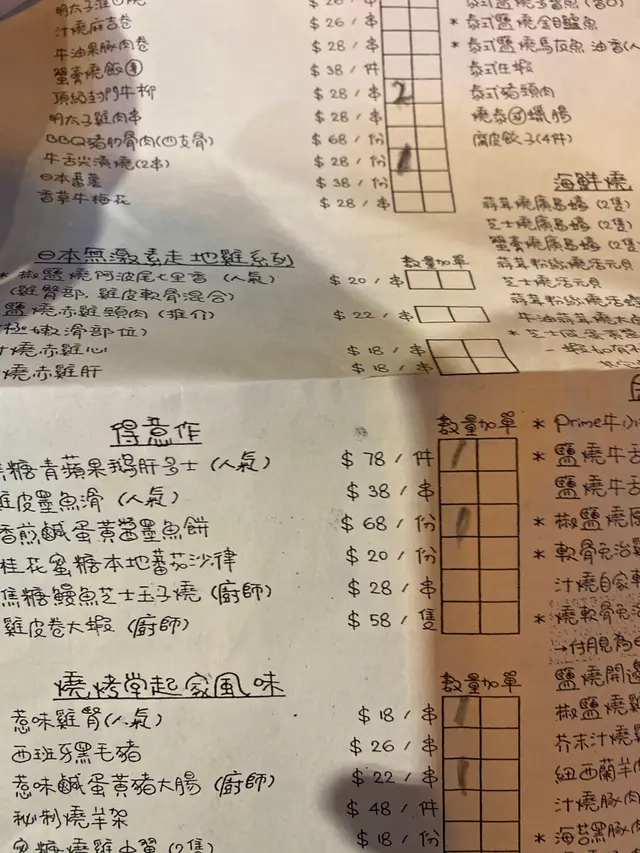 汁燒麻吉卷 $26/串
牛油果豚肉卷 $28/串
蟹膏燒飯 $38/件
頂級封門牛柳 $28/串 2
明太子雞肉串 $28/串
BBQ豬肋骨肉(四支骨) $68/份
牛舌尖漬燒(2串) $28/份 1
日本番薯 $38/份
香草牛梅花 $28/串
* 泰式鹽燒金目鱸魚
* 泰式鹽燒馬友魚
泰式生蝦
泰式豬頸肉
燒泰國臘腸
腐皮餃子(4件)
海鮮燒
蒜茸燒廣島蠔(2隻)
芝士燒廣島蠔(2隻)
蟹膏燒廣島蠔(2隻)
蒜茸粉絲燒活元貝
芝士燒活元貝
日本無激素走地雞系列 數量加單
* 椒鹽燒阿波尾七里香(人氣) $20/串
(雞臀部,雞皮軟骨混合)
鹽燒赤雞頸肉(推介) $22/串
極嫩滑部位)
燒赤雞心 $18/串
燒赤雞肝 $18/串
得意作 數量加單
焦糖青蘋果鵝肝多士(人氣) $78/件 1
雞皮墨魚滑(人氣) $38/串
香煎鹹蛋黃醬墨魚餅 $68/份 1
桂花蜜糖本地蕃茄沙律 $20/份
焦糖鰻魚芝士玉子燒(廚師) $28/串
雞皮卷大蝦(廚師) $58/隻
* Prime牛小
* 鹽燒牛舌
鹽燒牛舌
* 椒鹽燒
* 軟骨免治雞
汁燒自家
* 燒軟骨免治
鹽燒開邊
椒鹽燒雞
芥末汁燒雞
紐西蘭羊
汁燒豚肉
* 海苔黑豚肉
燒烤堂起家風味 數量加單
惹味雞腎(人氣) $18/串 1
西班牙黑毛豬 $26/串
惹味鹹蛋黃豬大腸(廚師) $22/串 1
秘制燒羊架 $48/件
蜜糖燒雞中翼(2隻) $18/份